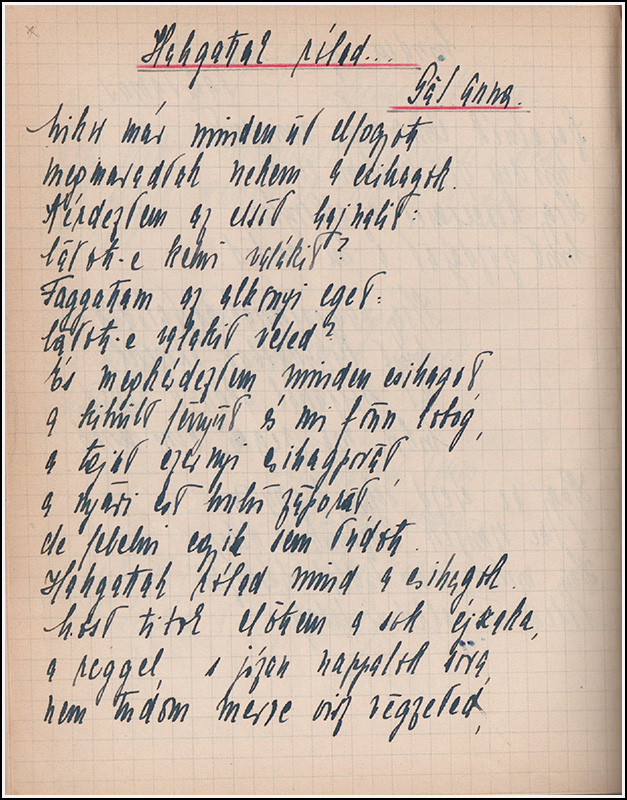 Hallgattak rólad...
Pál Anna.
Mikor már minden út elfogyott
megmaradtak nekem a csillagok.
Kérdeztem az első hajnalit:
látott-e kelni valakit?
Faggattam az alkonyi eget:
látott-e valakit veled?
És megkérdeztem minden csillagot,
a kihűlt fényűt és mi fönn lobog,
a tejút ezernyi csillagporát,
a nyári est hulló záporát,
de felelni egyik sem tudott.
Hallgattak rólad mind a csillagok.
Most titok előttem a sok éjszaka,
a reggel, s józan nappalok sora,
nem tudom merre visz végzeted,